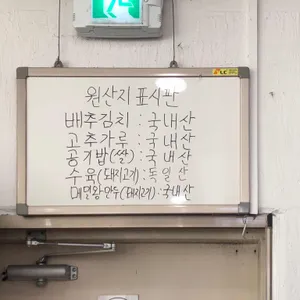 원산지 표시판
배추김치 : 국내산
고추가루 : 국내산
공기밥(쌀) : 국내산
수육(돼지고기) : 독일산
메밀왕만두(돼지고기) : 국내산